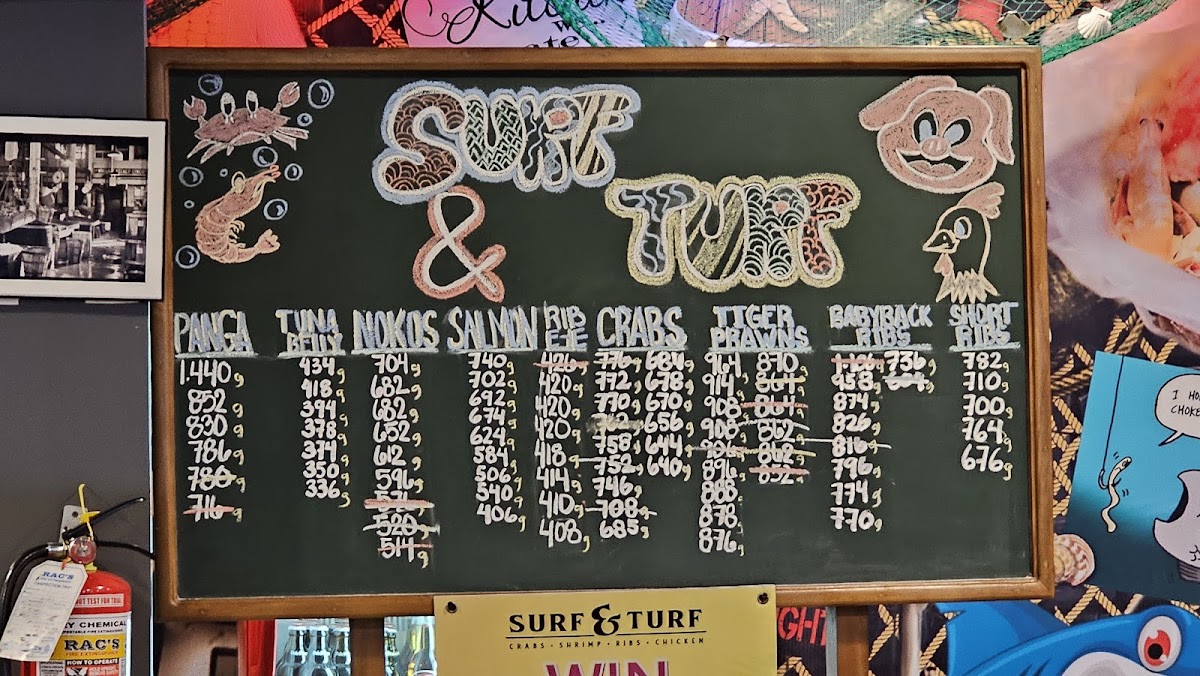 Kitchen
SURF
&
TURF
PANGA
1.440g
852g
830g
786g
780g
716g
TUNA
BELLY
434g
418g
394g
378g
374g
350g
336g
NOKOS
704g
682g
682g
652g
612g
596g
520g
514g
SALMON
740g
702g
692g
674g
624g
584g
506g
540g
406g
RIB
EYE
426g
420g
420g
420g
418g
414g
410g
408g
CRABS
776g 684g
772g 678g
770g 670g
656g
758g 644g
752g 640g
746g
708g
685g
TIGER
PRAWNS
964g 870g
914g 864g
908g 864g
908g 862g
906g 862g
896g 852g
888g
878g
876g
BABYBACK
RIBS
736g
958g
874g
826g
816g
796g
774g
770g
SHORT
RIBS
782g
710g
700g
764g
676g
RAC'S
NOT TEST FOR TRIAL
DRY CHEMICAL
RAC'S
HOW TO OPERATE
SURF & TURF
CRABS • SHRIMP • RIBS • CHICKEN
WIN
I HO
CHOKE